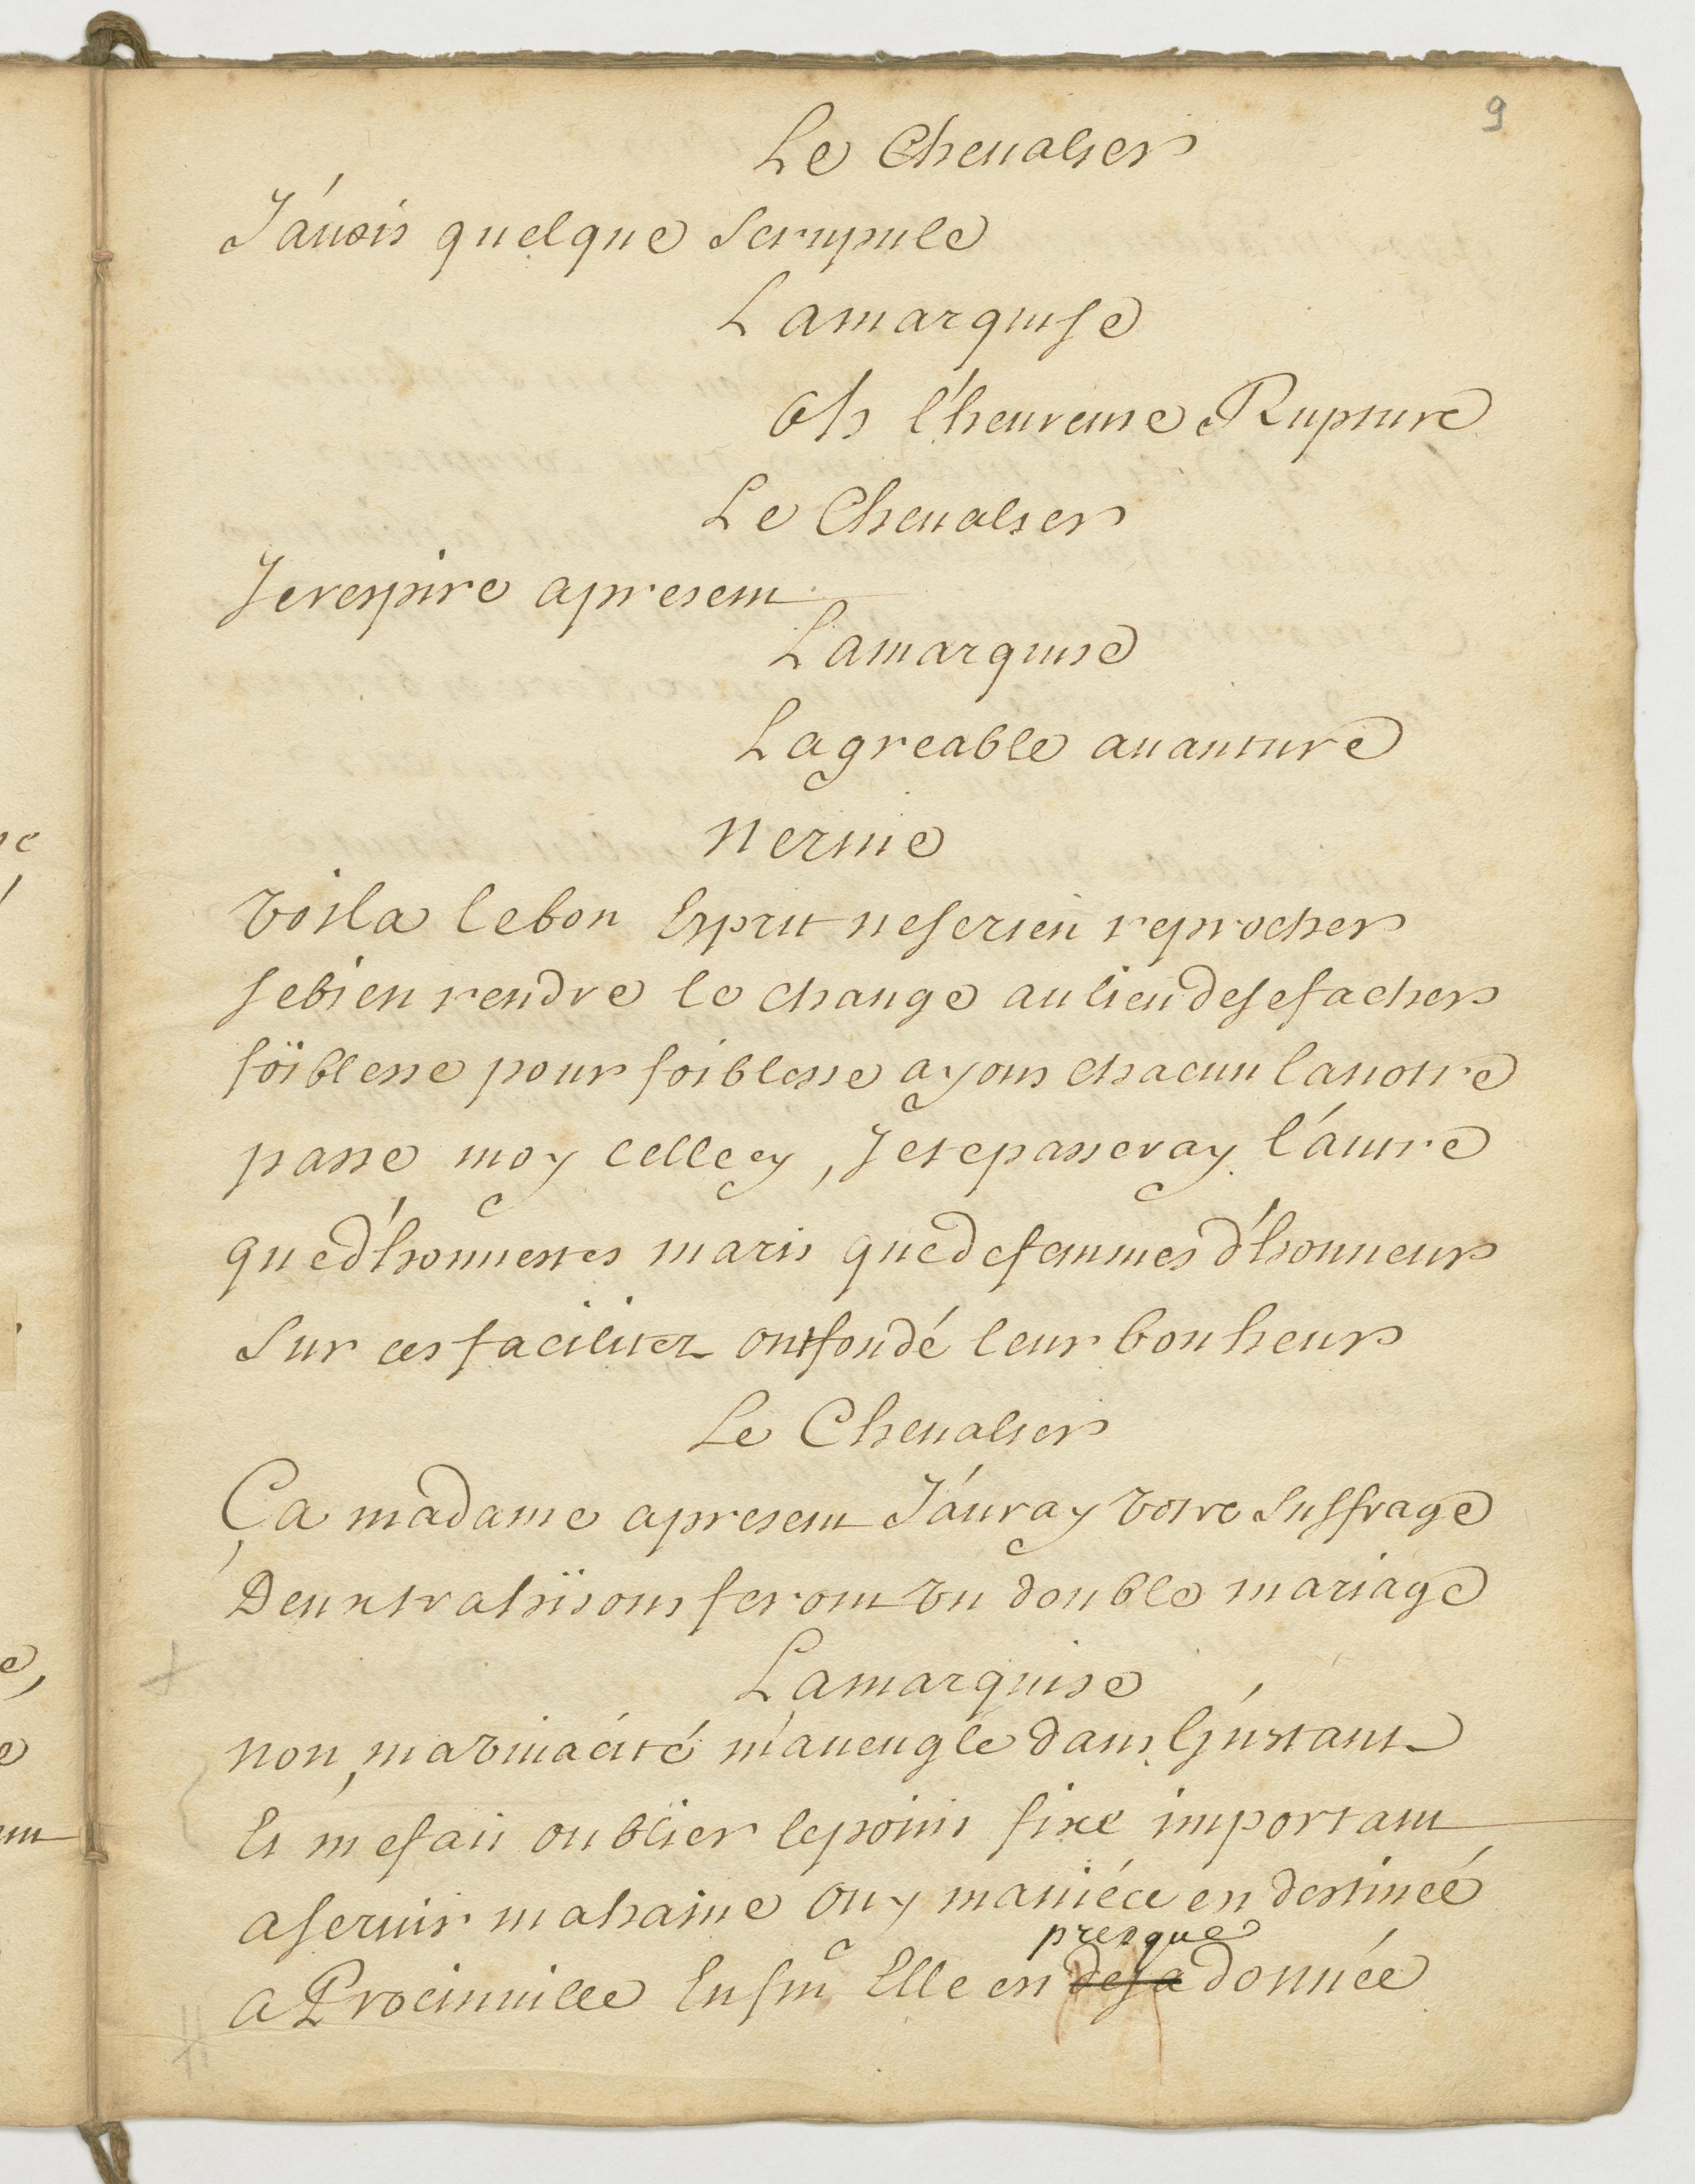 9
Le Chevalier
J'avois quelque scrupule
La marquise
Oh l'heureuse Rupture
Le Chevalier
Je respire apresent
La marquise
Lagreable avanture
Nerine
Voila le bon Esprit ne se rien reprocher
se bien rendre le change au lieu de se facher
foiblesse pour foiblesse ayons chacun la notre
passe moy celle cy, Je te passeray l'autre
que d'honnestes maris que de femmes d'honneur
Sur ces facilitez ont fondé leur bonheur
Le Chevalier
Ça madame apresent J'auray votre Suffrage
Deux trahisons feront un double mariage
La marquise
non, ma vivacité m'aveugle dans l'Instant
Et me fait oublier le point fixe important
a servir ma haine ouy ma niéce est destinée
presque
a Procinville Enfin Elle est deja donnée